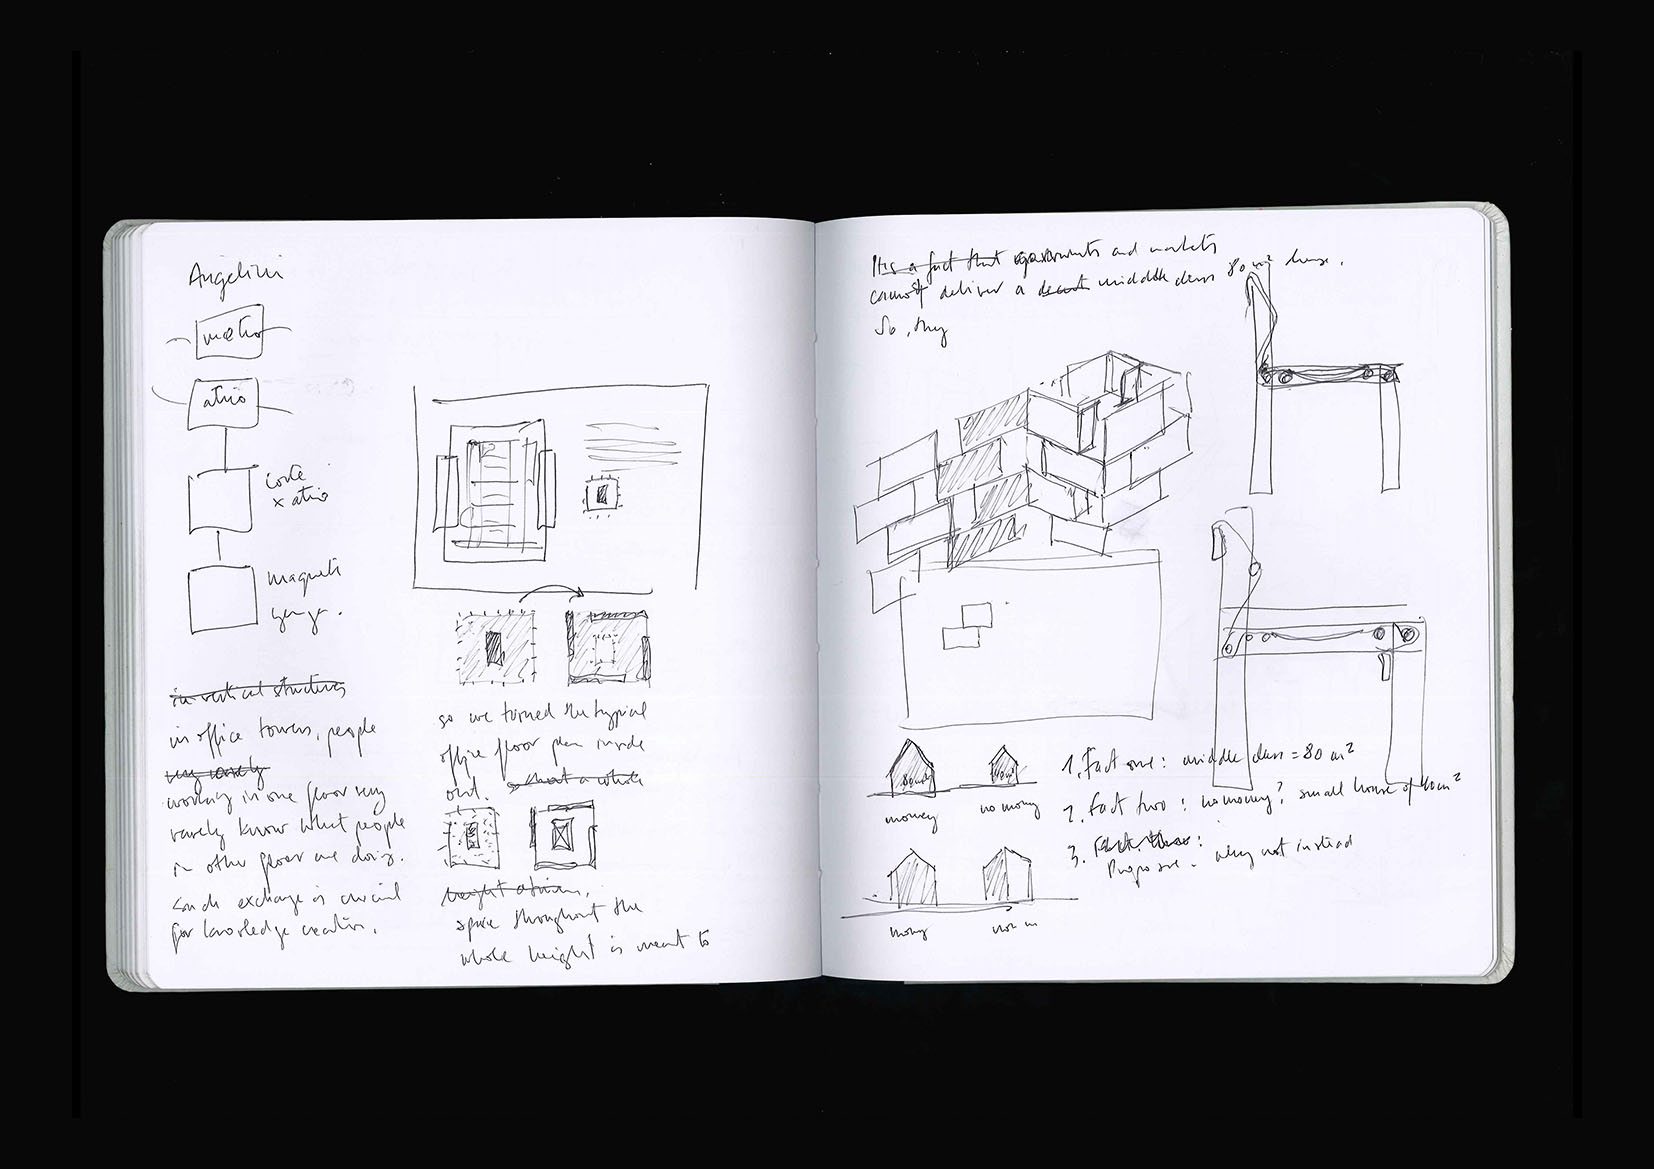 Angelini
metro
atrio
corte
x atrio
maqueta
in vertical structures
in office towers, people
very rarely
working in one floor very
rarely know what people
in other floor are doing.
such exchange is crucial
for knowledge creation.
so we turned the typical
office floor plan inside
out. a whole
height atrium,
space throughout the
whole height is meant to
It is a fact that governments and markets
cannot deliver a decent middle class 80 m² house.
So, they
80m²
40m²
money
no money
money
1. Fact one: middle class = 80 m²
2. Fact two: no money? small house of 40m²
3. Fact three:
Propose: why not instead